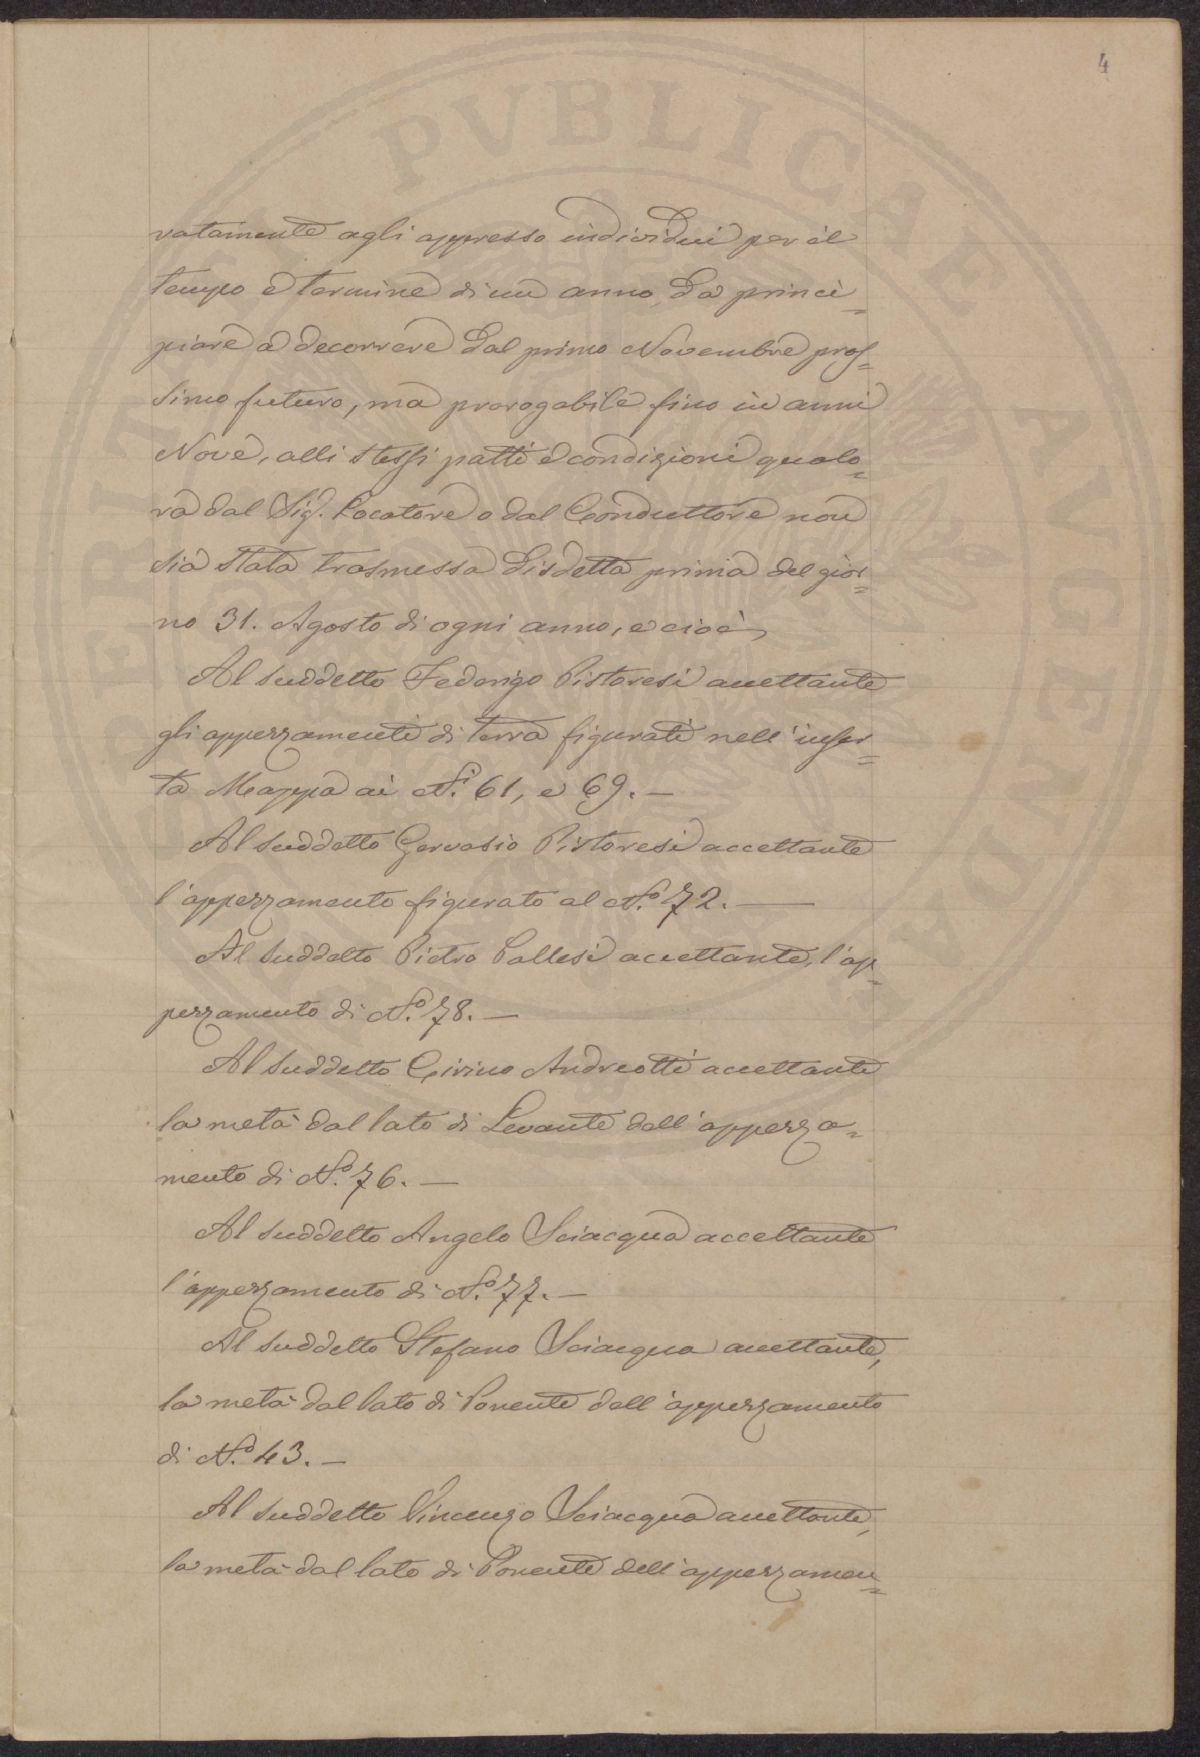 4
vatamente agli appresso individui per il
tempo e termine di un anno, da princi=
piare a decorrere dal primo Novembre pros=
simo futuro, ma prorogabile fino in anni
Nove, alli stessi patti e condizioni qualo=
ra dal Sig. Locatore o dal Conduttore non
sia stata trasmessa disdetta prima del gior=
no 31. Agosto di ogni anno, e cioè,
Al suddetto Federigo Pistoresi accettante
gli appezzamenti di terra figurati nell'inser=
ta Mappa ai Ni. 61, e 69. —
Al suddetto Gervasio Pistoresi accettante
l'appezzamento figurato al No. 72. —
Al suddetto Pietro Pallesi accettante, l'ap=
pezzamento di No. 78. —
Al suddetto Cirino Andreotti accettante
la metà dal lato di Levante dell'appezza=
mento di No. 76. —
Al suddetto Angelo Sciacqua accettante
l'appezzamento di No. 77. —
Al suddetto Stefano Sciacqua accettante,
la metà dal lato di Ponente dell'appezzamento
di No. 43. —
Al suddetto Vincenzo Sciacqua accettante,
la metà dal lato di Ponente dell'appezzamen=